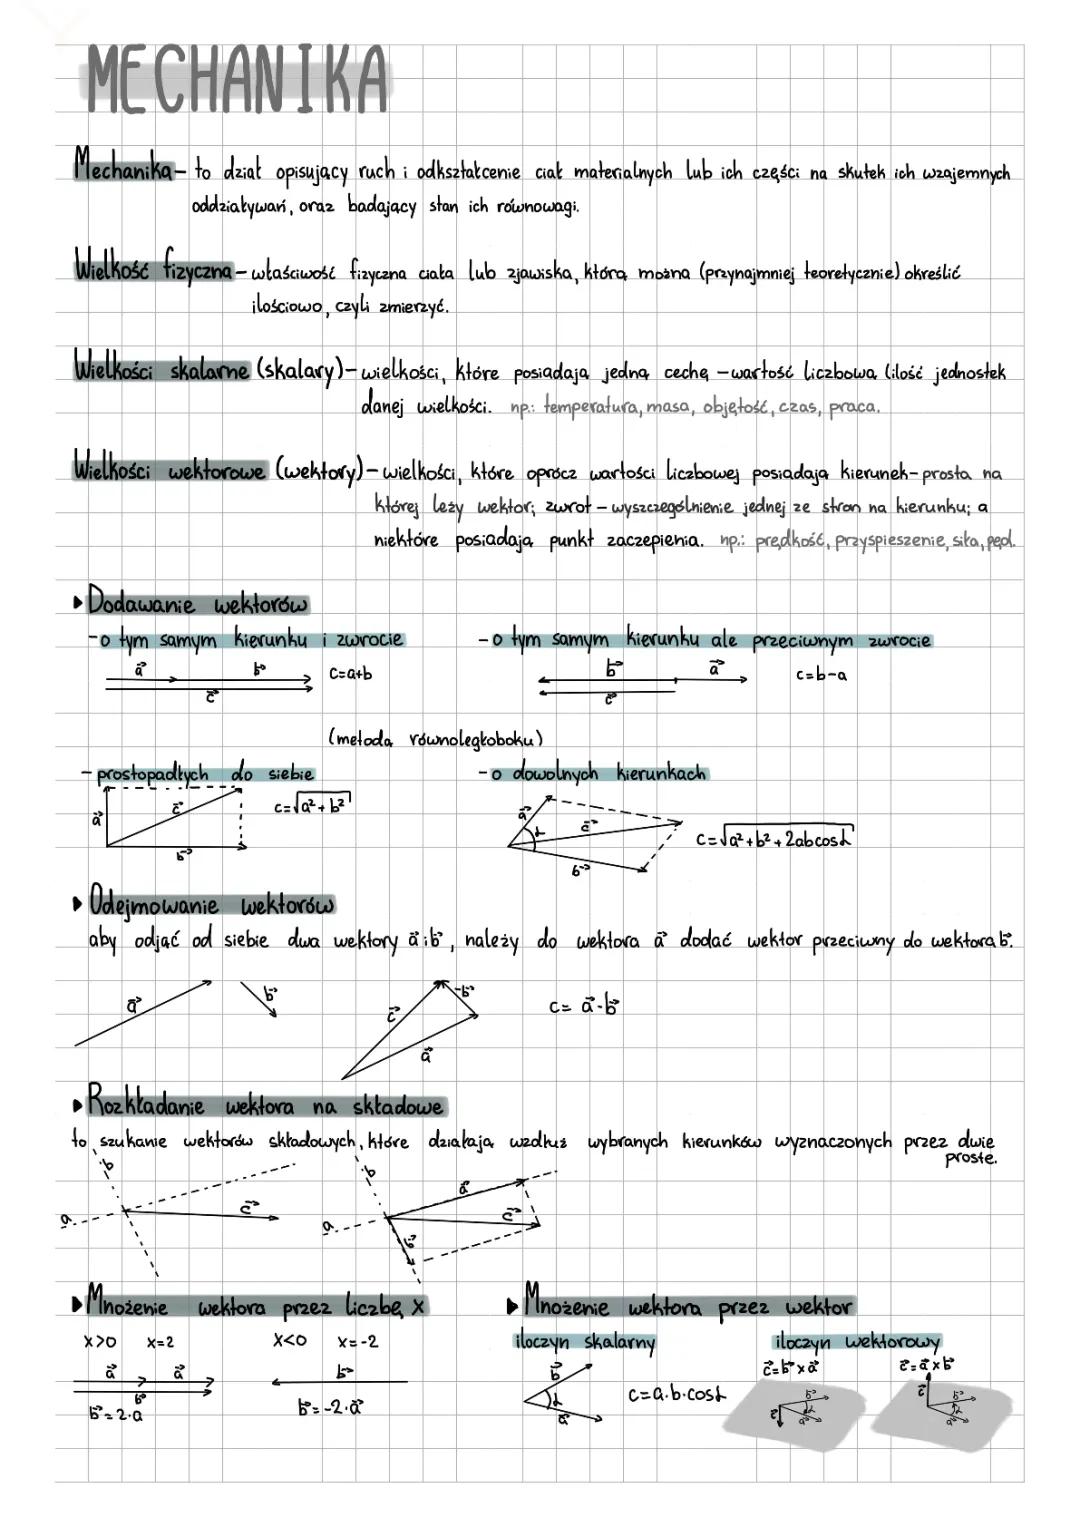 MECHANIKA
Mechanika - to dział opisujący ruch i odkształcenie ciał materialnych lub ich części na skutek ich wzajemnych
oddziaływań, oraz badający stan ich równowagi.
Wielkość fizyczna - właściwość fizyczna ciała lub zjawiska, którą można (przynajmniej teoretycznie) określić
ilościowo, czyli zmierzyć.
Wielkości skalarne (skalary) - wielkości, które posiadają jedną cechę - wartość liczbową (ilość jednostek
danej wielkości. np.: temperatura, masa, objętość, czas, praca.
Wielkości wektorowe (wektory) - wielkości, które oprócz wartości liczbowej posiadają kierunek - prosta na
której leży wektor; zwrot - wyszczególnienie jednej ze stron na kierunku; a
niektóre posiadają punkt zaczepienia. np.: prędkość, przyspieszenie, siła, pęd.
▸ Dodawanie wektorów
- o tym samym kierunku i zwrocie
a⃗ b⃗ c=a+b
c⃗
- o tym samym kierunku ale przeciwnym zwrocie
b⃗ a⃗ c=b-a
c⃗
(metoda równoległoboku)
- prostopadłych do siebie
a⃗ c⃗ c=√a²+b²
b⃗
- o dowolnych kierunkach
a⃗ α c⃗ c=√a²+b²+2abcosα
b⃗
▸ Odejmowanie wektorów
aby odjąć od siebie dwa wektory a⃗ i b⃗, należy do wektora a⃗ dodać wektor przeciwny do wektora b⃗.
a⃗ b⃗ c⃗ -b⃗ c= a⃗-b⃗
a⃗
▸ Rozkładanie wektora na składowe
to szukanie wektorów składowych, które działają wzdłuż wybranych kierunków wyznaczonych przez dwie
proste.
b
a c⃗
b
a a⃗ c⃗
b⃗
▸ Mnożenie wektora przez liczbę x
x>0 x=2
a⃗ a⃗
b⃗
b⃗=2·a
x<0 x=-2
b⃗
b⃗=-2·a⃗
▸ Mnożenie wektora przez wektor
iloczyn skalarny
b⃗
α c=a·b·cosα
a⃗
iloczyn wektorowy
c⃗=b⃗×a⃗
b⃗
c⃗ α
a⃗
c⃗=a⃗×b⃗
c⃗ b⃗
α
a⃗